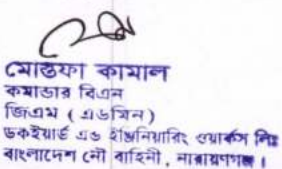 মোস্তফা কামাল
কমান্ডার বিএন
জিএম ( এডমিন )
ডকইয়ার্ড এন্ড ইঞ্জিনিয়ারিং ওয়ার্কস লিঃ
বাংলাদেশ নৌ বাহিনী, নারায়ণগঞ্জ।